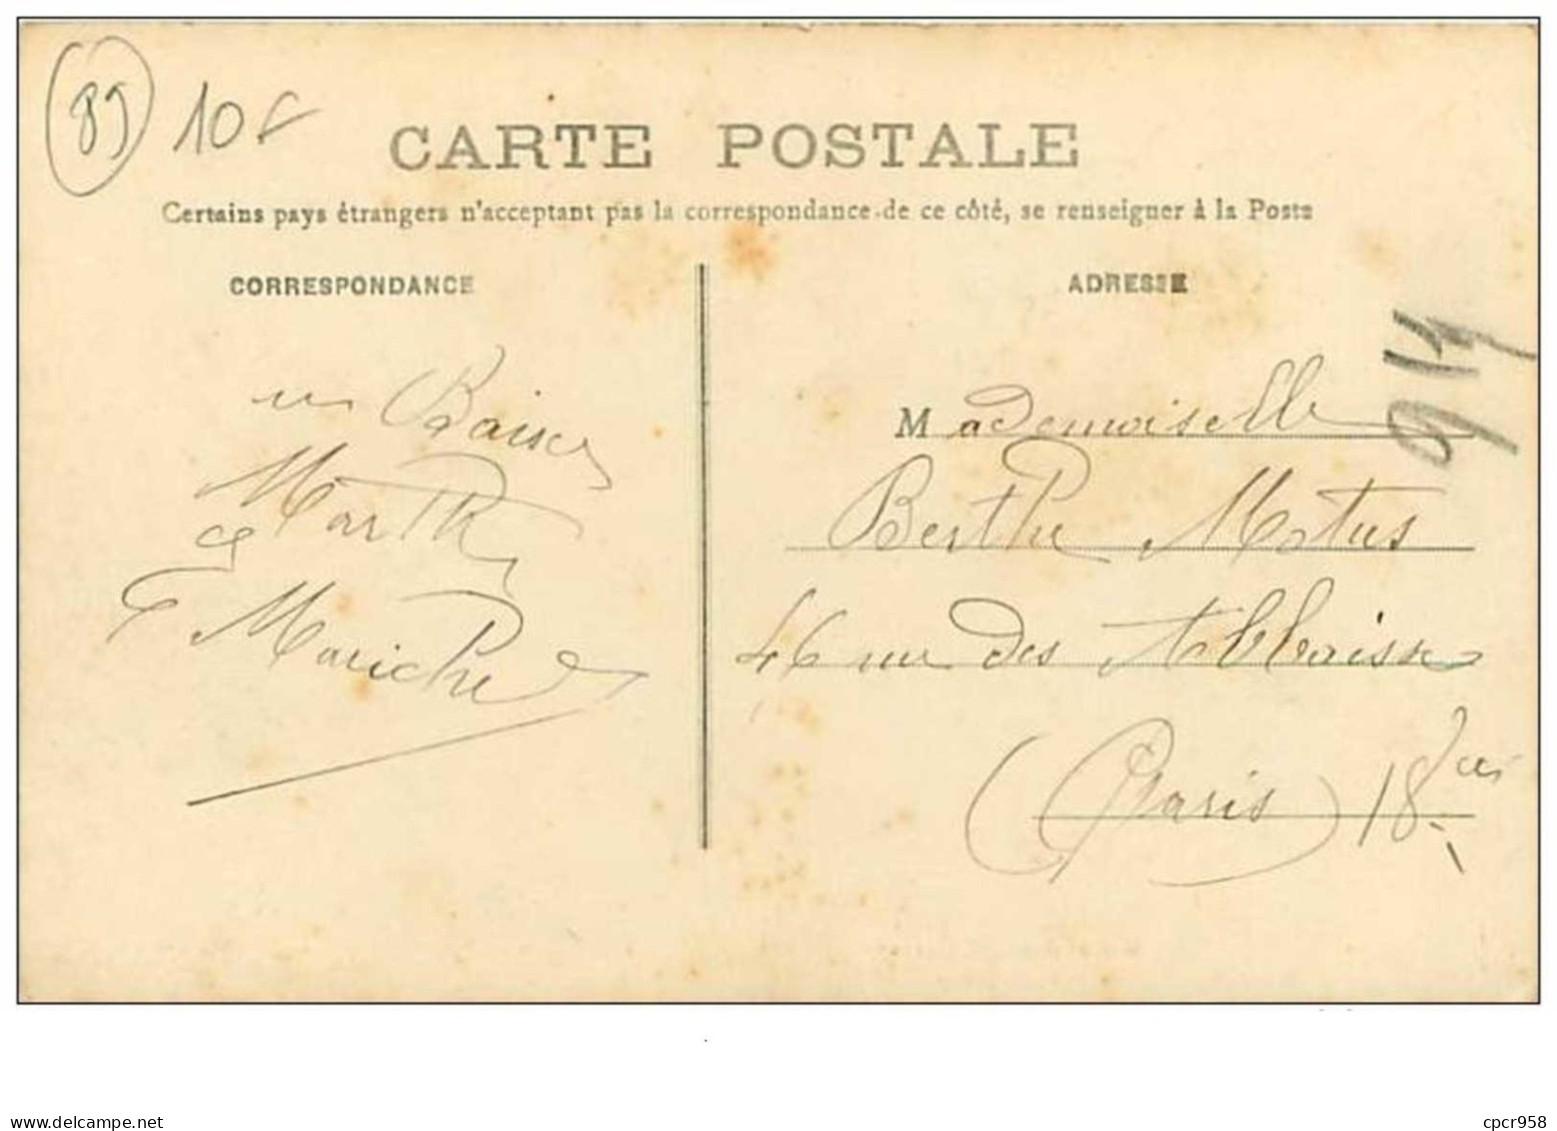 89 10F
CARTE POSTALE
Certains pays étrangers n'acceptant pas la correspondance de ce côté, se renseigner à la Poste
CORRESPONDANCE
ADRESSE
un Baiser
Marthe
Mademoiselle
Berthe Motus
46 rue des Abbaisse
(Paris) 18
www.delcampe.net
cpcr958